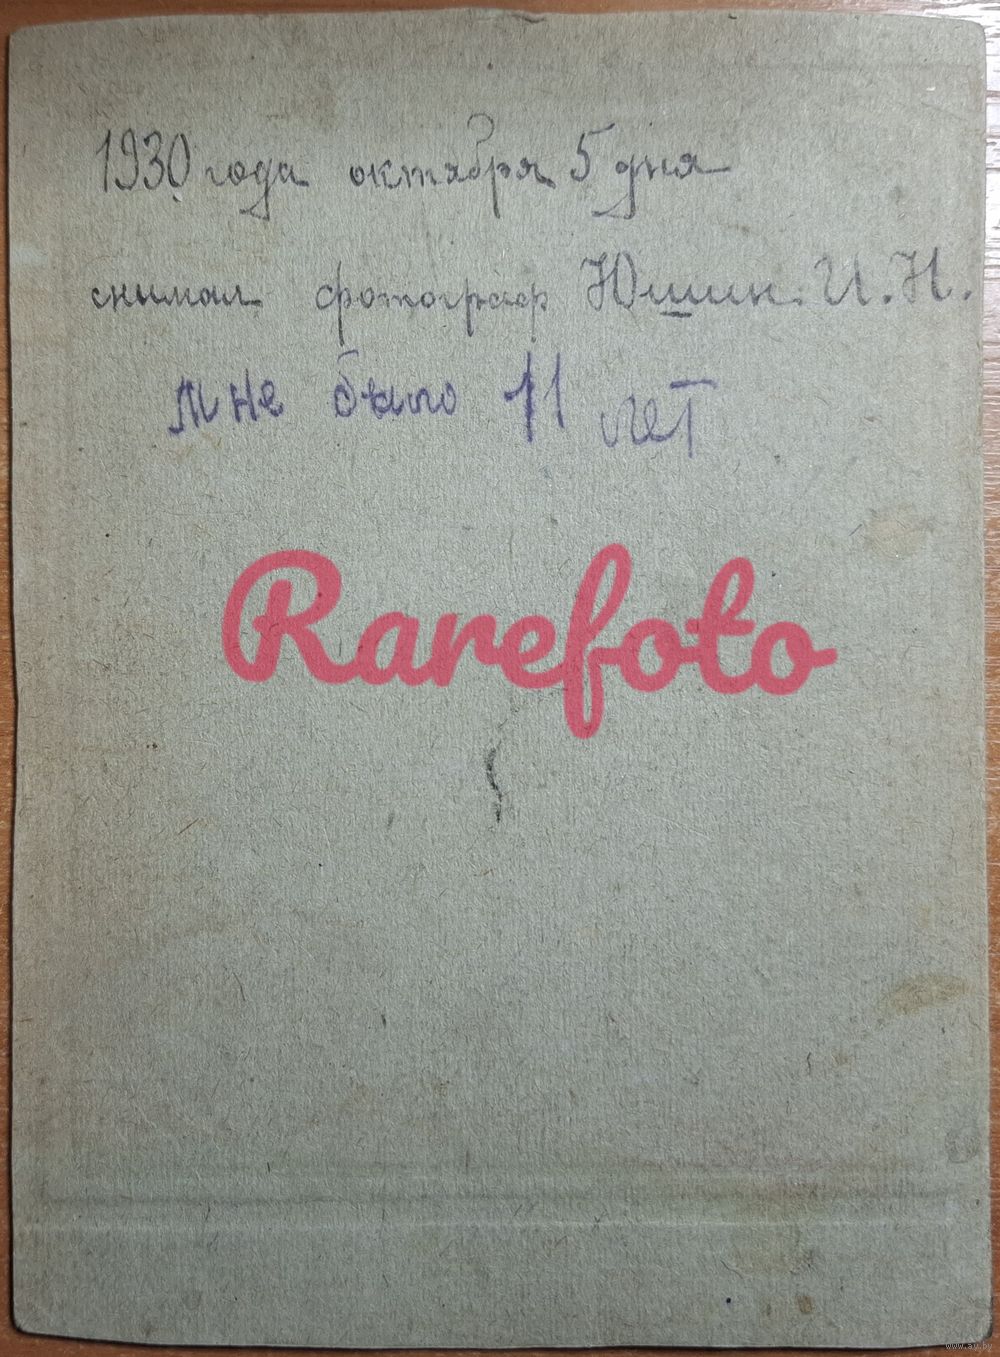 1930 года октября 5 дня
снимал фотограф Юшин. И. Н.
мне было 11 лет
Rarefoto
www.ay.by